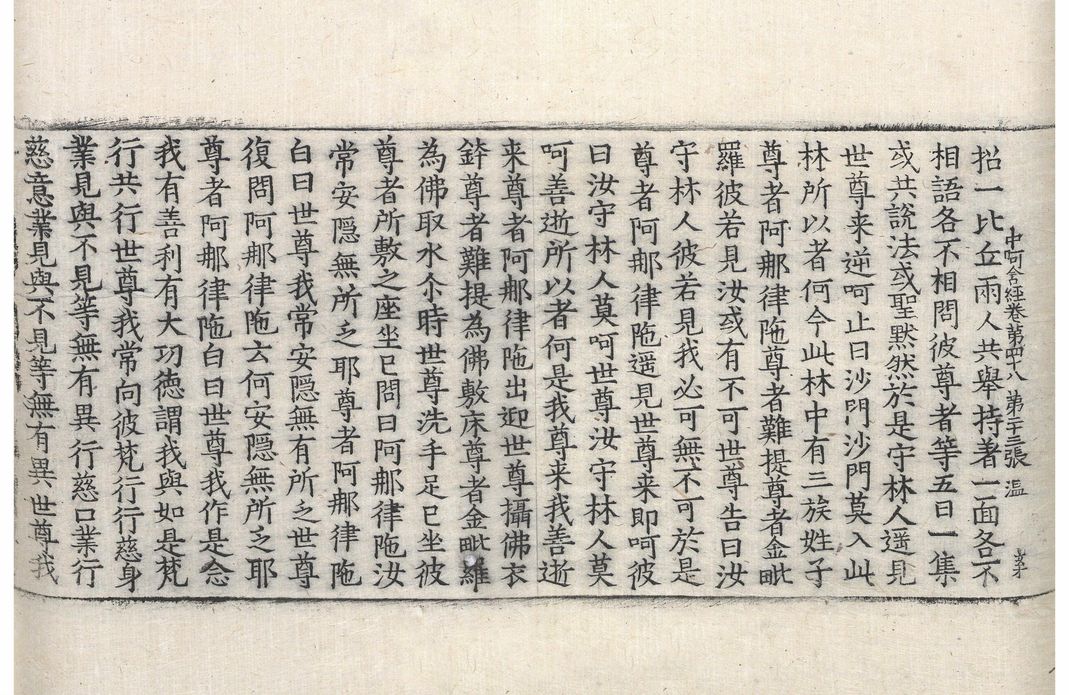 中阿含經卷第四十八 第二十三張 溫
招一比丘兩人共舉持著一面各不
相語各不相問彼尊者等五日一集
或共說法或聖默然於是守林人遥見
世尊来逆呵止曰沙門沙門莫入此
林所以者何今此林中有三族姓子
尊者阿那律陁尊者難提尊者金毗
羅彼若見汝或有不可世尊告曰汝
守林人彼若見我必可無不可於是
尊者阿那律陁遥見世尊来即呵彼
曰汝守林人莫呵世尊汝守林人莫
呵善逝所以者何是我尊来我善逝
来尊者阿那律陁出迎世尊攝佛衣
鉢尊者難提為佛敷床尊者金毗羅
為佛取水尒時世尊洗手足已坐彼
尊者所敷之座坐已問曰阿那律陁汝
常安隱無所乏耶尊者阿那律陁
白曰世尊我常安隱無有所乏世尊
復問阿那律陁云何安隱無所乏耶
尊者阿那律陁白曰世尊我作是念
我有善利有大功德謂我與如是梵
行共行世尊我常向彼梵行行慈身
業見與不見等無有異行慈口業行
慈意業見與不見等無有異世尊我